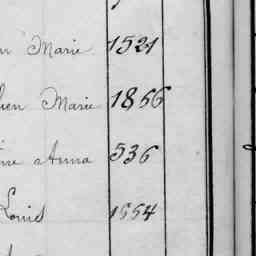 Marie 1521
Marie 1856
Anna 536
Louis 1654